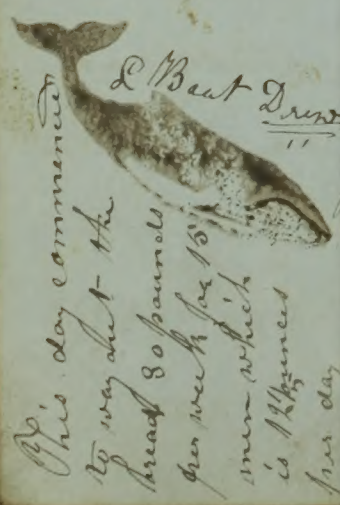 L Boat Drew
This day commenced
to way out the
bread 80 pounds
per week for 15
men which
is 12 ounces
per day